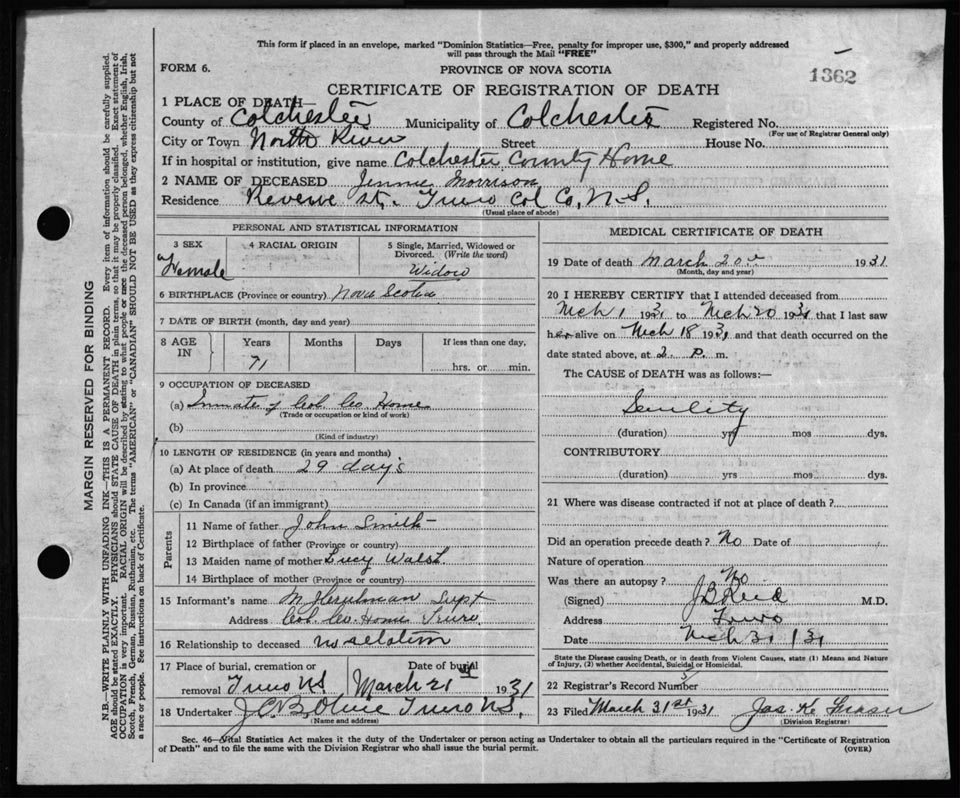 This form if placed in an envelope, marked "Dominion Statistics—Free, penalty for improper use, $300," and properly addressed
will pass through the Mail "FREE"
FORM 6.
PROVINCE OF NOVA SCOTIA
1362
CERTIFICATE OF REGISTRATION OF DEATH
1 PLACE OF DEATH—
County of Colchester Municipality of Colchester Registered No.
(For use of Registrar General only)
City or Town North River Street House No.
If in hospital or institution, give name Colchester County Home
2 NAME OF DECEASED Jennie Morrison
Residence Reverve St. Truro Col Co, N.S.
(Usual place of abode)
PERSONAL AND STATISTICAL INFORMATION
3 SEX 4 RACIAL ORIGIN 5 Single, Married, Widowed or
Divorced. (Write the word)
Female Widow
6 BIRTHPLACE (Province or country) Nova Scotia
7 DATE OF BIRTH (month, day and year)
8 AGE IN Years Months Days If less than one day.
71 hrs. or min.
9 OCCUPATION OF DECEASED
(a) Inmate of Col. Co. Home
(Trade or occupation or kind of work)
(b)
(Kind of industry)
10 LENGTH OF RESIDENCE (in years and months)
(a) At place of death 29 day's
(b) In province
(c) In Canada (if an immigrant)
Parents
11 Name of father John Smith
12 Birthplace of father (Province or country)
13 Maiden name of mother Lucy
14 Birthplace of mother (Province or country)
15 Informant's name Supt
Address Col. Co. Home Truro
16 Relationship to deceased no relation
17 Place of burial, cremation or Date of burial
removal Truro NS March 21st 1931
18 Undertaker Truro NS.
(Name and address)
MEDICAL CERTIFICATE OF DEATH
19 Date of death March 20 1931
(Month, day and year)
20 I HEREBY CERTIFY that I attended deceased from
Mch 1 1931 to Mch 20 1931 that I last saw
her alive on Mch 18 1931 and that death occurred on the
date stated above, at 2. P. m.
The CAUSE of DEATH was as follows:—
Senility
(duration) yrs mos dys.
CONTRIBUTORY
(duration) yrs mos dys.
21 Where was disease contracted if not at place of death?
Did an operation precede death? No Date of
Nature of operation
Was there an autopsy? No
(Signed) J B Reid M.D.
Address Truro
Date Mch 31 / 31
State the Disease causing Death, or in death from Violent Causes, state (1) Means and Nature
of Injury, (2) whether Accidental, Suicidal or Homicidal.
22 Registrar's Record Number
23 Filed March 31st 1931 Jas. K. Fraser
(Division Registrar)
Sec. 46—Vital Statistics Act makes it the duty of the Undertaker or person acting as Undertaker to obtain all the particulars required in the "Certificate of Registration
of Death" and to file the same with the Division Registrar who shall issue the burial permit.
(OVER)
MARGIN RESERVED FOR BINDING
N.B.—WRITE PLAINLY WITH UNFADING INK—THIS IS A PERMANENT RECORD. Every item of information should be carefully supplied.
AGE should be stated EXACTLY. PHYSICIANS should STATE CAUSE OF DEATH in plain terms, so that it may be properly classified. Exact statement of
OCCUPATION is very important. RACIAL ORIGIN will be described by stating to what people or race the deceased person belonged, whether English, Irish,
Scotch, French, German, Russian, Ruthenian, etc. The terms "AMERICAN" or "CANADIAN" SHOULD NOT BE USED as they express citizenship but not
a race or people. See instructions on back of Certificate.